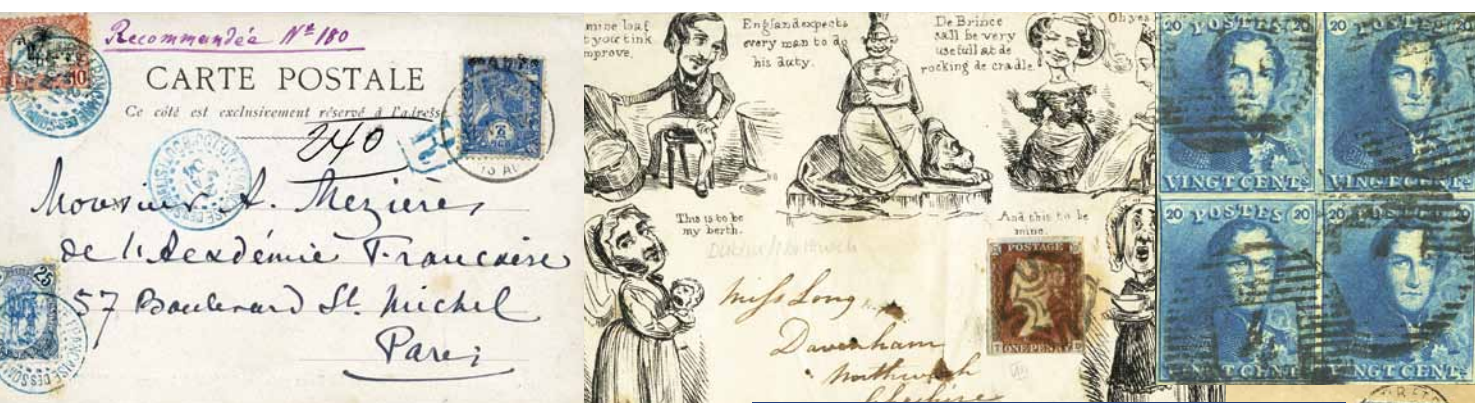 Recommandée Nº 180
CARTE POSTALE
Ce côté est exclusivement réservé à l'adresse
240
R
10
25
Monsieur A. Mezières
de l'Académie Française
57 Boulevard St Michel
Paris
mine loaf
t you tink
mprove.
England expects
every man to do
his duty.
De Brince
sall be very
usefull at de
rocking de cradle.
Oh yes
This is to be
my berth.
And this to be
mine.
Miss Long
Davenham
Northwich
Cheshire
POSTAGE
ONE PENNY
20 POSTES 20
VINGT CENTS
20 POSTES 20
VINGT CENTS
20 POSTES 20
VINGT CENTS
20 POSTES 20
VINGT CENTS